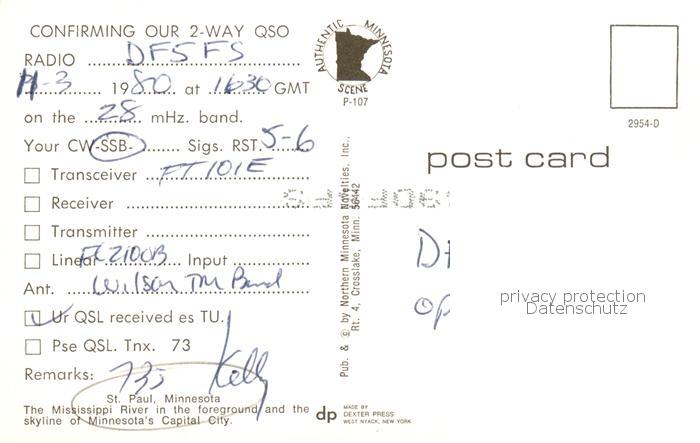 CONFIRMING OUR 2-WAY QSO
RADIO DF5FS
11-3 1980 at 1630 GMT
on the 28 mHz. band.
Your CW-SSB- Sigs. RST. 5-6
Transceiver FT101E
Receiver
Transmitter
Linear FL2100B Input
Ant. Wilson Tri Band
Ur QSL received es TU.
Pse QSL. Tnx. 73
Remarks: 73s Kelly
St. Paul, Minnesota
The Mississippi River in the foreground and the
skyline of Minnesota's Capital City.
AUTHENTIC MINNESOTA
SCENE
P-107
Pub. & © by Northern Minnesota Novelties, Inc.,
Rt. 4, Crosslake, Minn. 56442
dp MADE BY
DEXTER PRESS
WEST NYACK, NEW YORK
2954-D
post card
op
privacy protection
Datenschutz